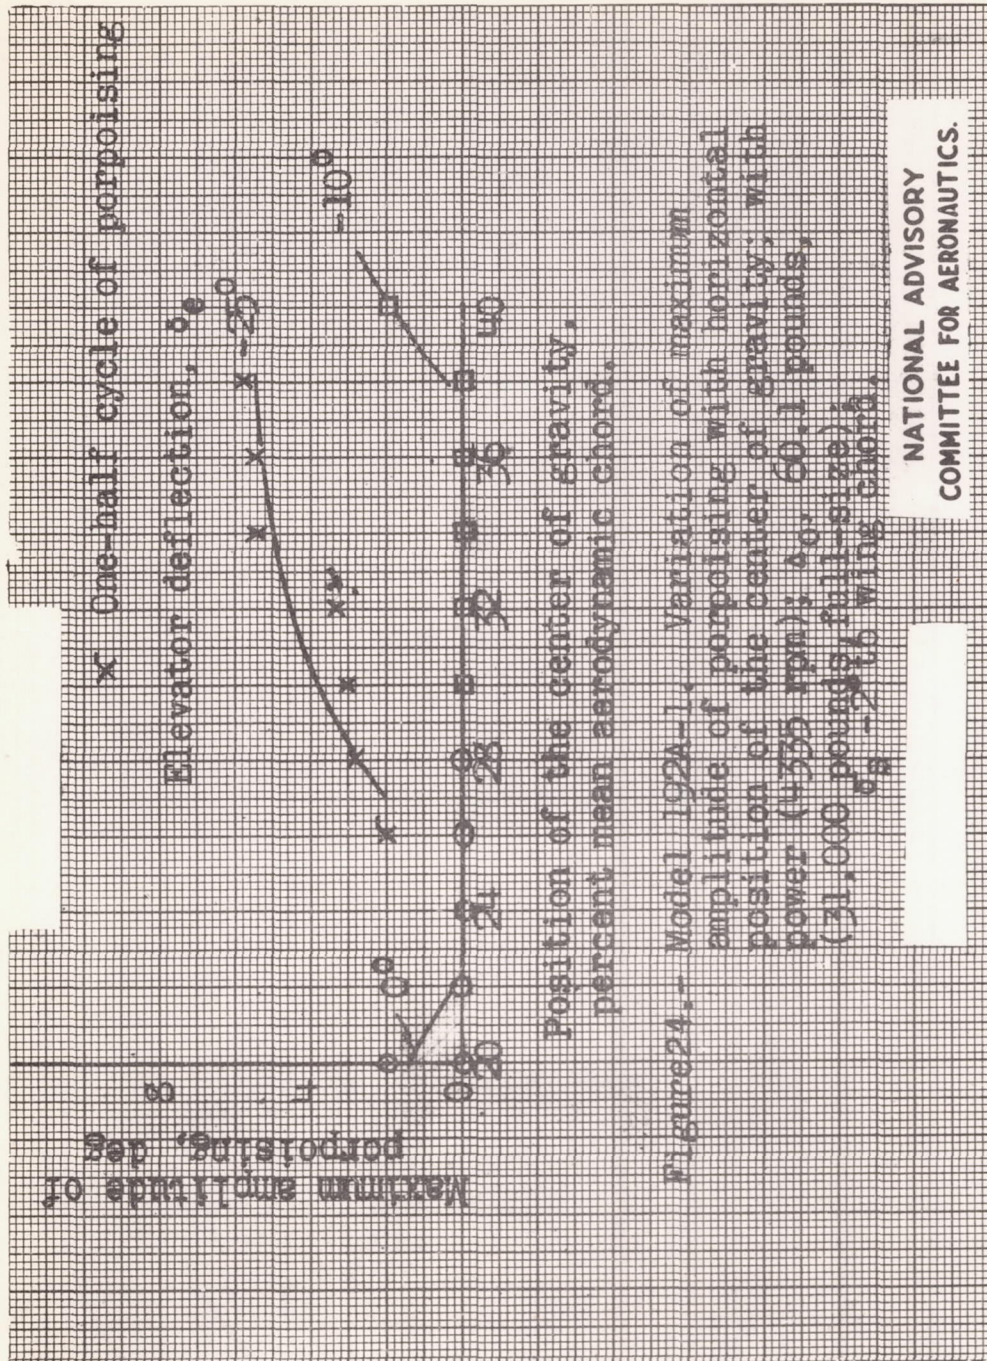 x One-half cycle of porpoising
Elevator deflection, δe
-25°
-10°
0°
Maximum amplitude of
porpoising, deg
8
4
0
20
24
28
32
36
40
Position of the center of gravity,
percent mean aerodynamic chord.
Figure 24.- Model 192A-1. Variation of maximum
amplitude of porpoising with horizontal
position of the center of gravity; with
power (4335 rpm); Δo, 60.1 pounds,
(31,000 pounds full-size)
wing chord.
NATIONAL ADVISORY
COMMITTEE FOR AERONAUTICS.